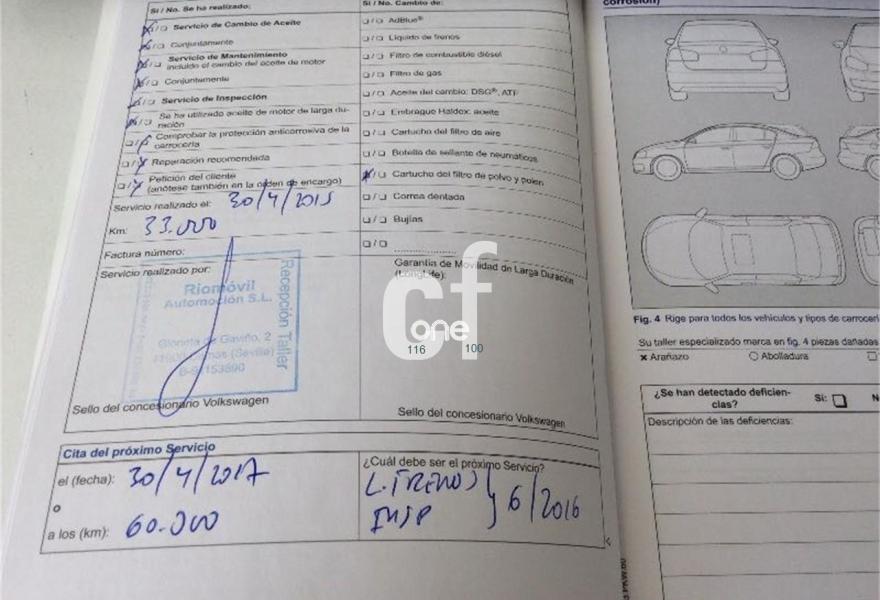 Sí / No. Se ha realizado:
☒/☐ Servicio de Cambio de Aceite
☒/☐ Conjuntamente
☒/☐ Servicio de Mantenimiento
incluido el cambio del aceite de motor
☒/☐ Conjuntamente
☒/☐ Servicio de Inspección
☒/☐ Se ha utilizado aceite de motor de larga du-
ración
☐/☒ Comprobar la protección anticorrosiva de la
carrocería
☐/☒ Reparación recomendada
☐/☒ Petición del cliente
(anótese también en la orden de encargo)
Servicio realizado el: 30/4/2015
Km: 33.000
Factura número:
Servicio realizado por:
Riomóvil
Automoción S.L.
Glorieta de Gaviño, 2
(Sevilla)
Recepción Taller
Sello del concesionario Volkswagen
Sí / No. Cambio de:
☐/☐ AdBlue®
☐/☐ Líquido de frenos
☐/☐ Filtro de combustible diésel
☐/☐ Filtro de gas
☐/☐ Aceite del cambio: DSG®, ATF
☐/☐ Embrague Haldex: aceite
☐/☐ Cartucho del filtro de aire
☐/☐ Botella de sellante de neumáticos
☒/☐ Cartucho del filtro de polvo y polen
☐/☐ Correa dentada
☐/☐ Bujías
☐/☐
Garantía de Movilidad de Larga Duración
(LongLife):
Sello del concesionario Volkswagen
cf
one
116 100
Cita del próximo Servicio
el (fecha): 30/4/2017
o
a los (km): 60.000
¿Cuál debe ser el próximo Servicio?
L. FRENOS y 6/2016
INSP
corrosión)
Fig. 4 Rige para todos los vehículos y tipos de carrocerí
Su taller especializado marca en fig. 4 piezas dañadas
× Arañazo ○ Abolladura ☐
¿Se han detectado deficien-
cias? Sí: ☐ N
Descripción de las deficiencias: